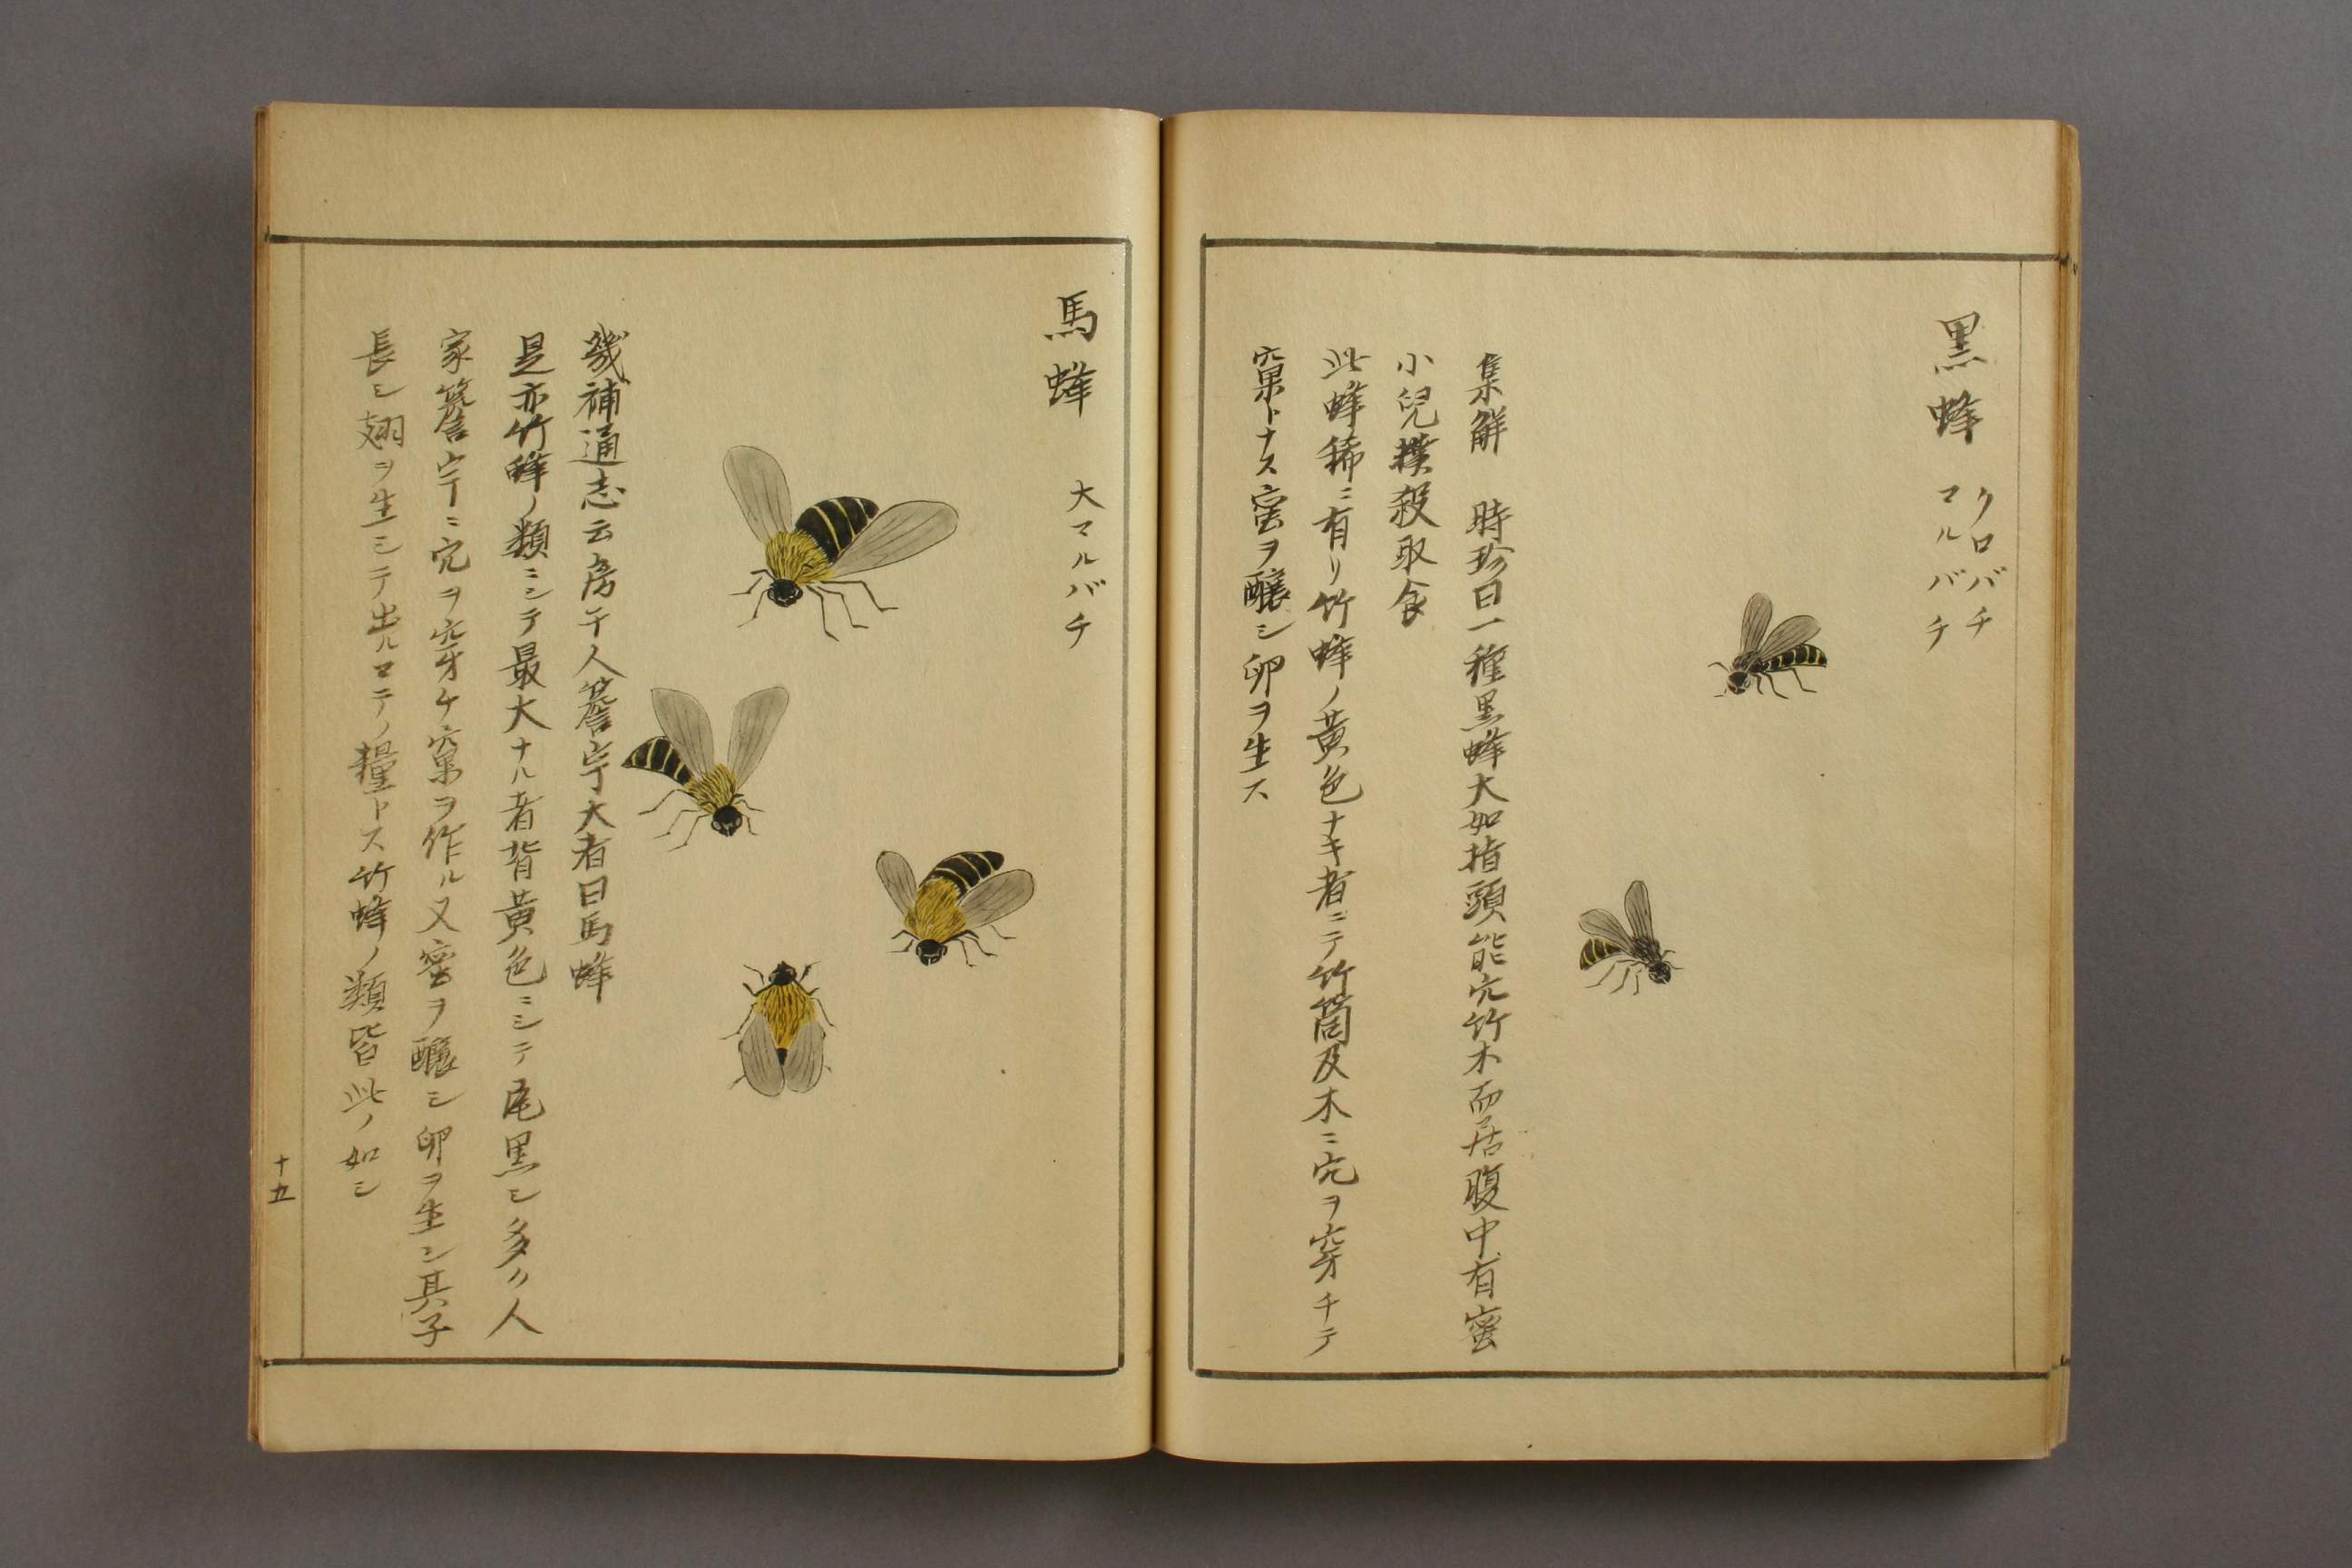 黒蜂
クロバチ
マルバチ
集解 時珍曰一種黒蜂大如指頭能穴竹木而居腹中有蜜
小兒撲殺取食
此蜂稀ニ有リ竹蜂ノ黄色ナキ者ニテ竹筒及木ニ穴ヲ穿チテ
窠トナス窑ヲ醸シ卵ヲ生ス
馬蜂
大マルバチ
畿補通志云房于人簷宇大者曰馬蜂
是亦竹蜂ノ類ニシテ最大ナル者背黄色ニシテ尾黒シ多ク人
家簷宇ニ穴ヲ穿チ窠ヲ作ル又蜜ヲ醸シ卵ヲ生シ其子
長シ翅ヲ生シテ出ルマテノ糧トス竹蜂ノ類皆此ノ如シ
十五